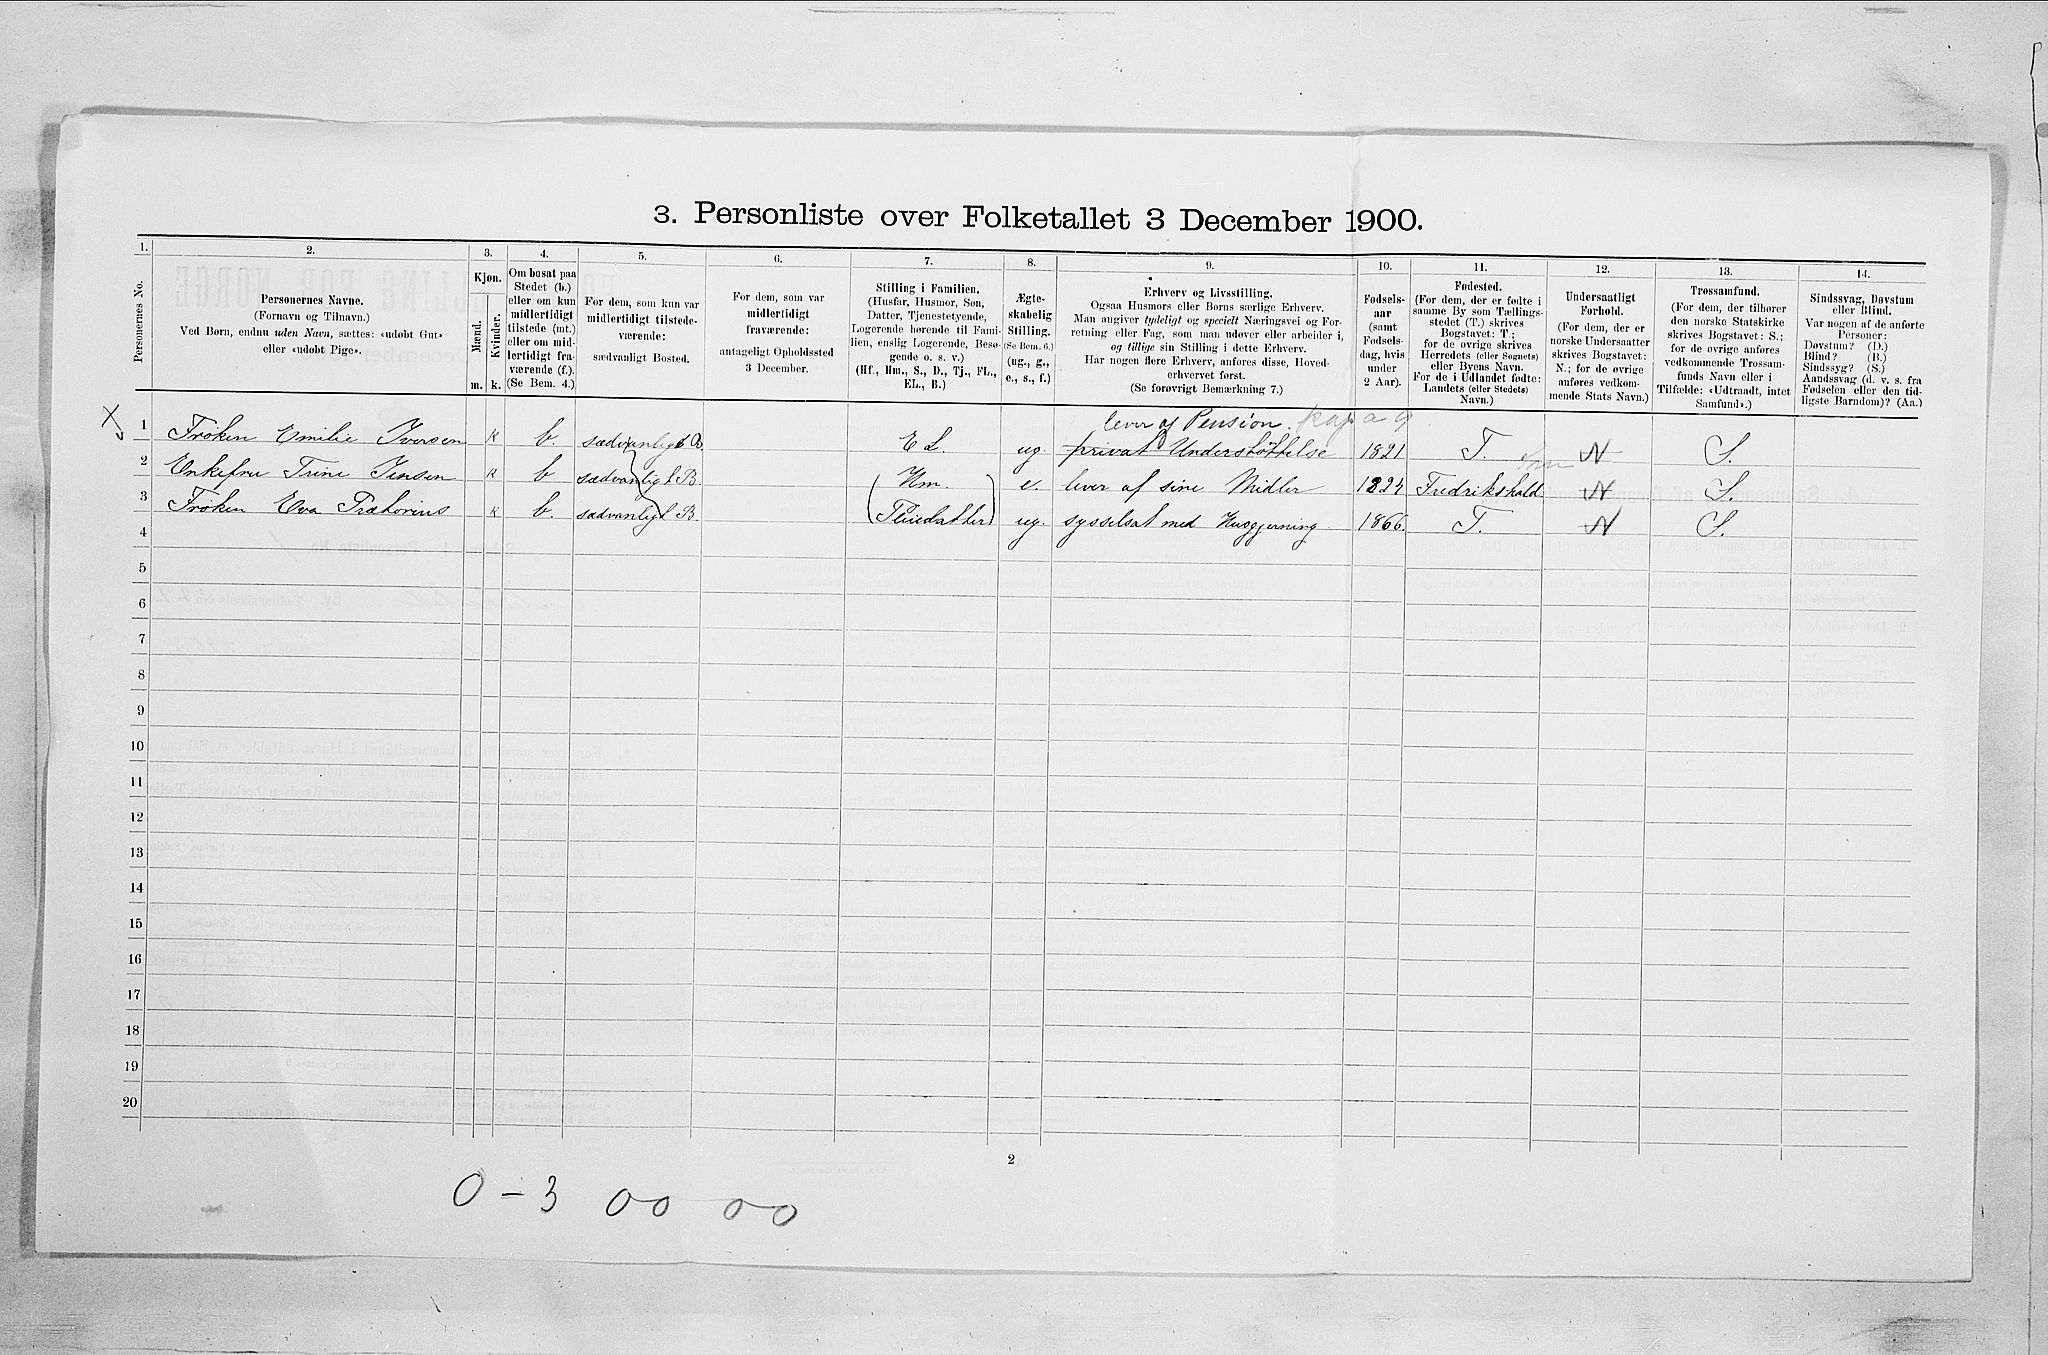 3. Personliste over Folketallet 3 December 1900.
1. 2. 3. 4. 5. 6. 7. 8. 9. 10. 11. 12. 13. 14.
Personernes No.
Personernes Navne.
(Fornavn og Tilnavn.)
Ved Børn, endnu uden Navn, sættes: «udøbt Gut»
eller «udøbt Pige».
Kjøn.
Mænd.
Kvinder.
m. k.
Om bosat paa
Stedet (b.)
eller om kun
midlertidigt
tilstede (mt.)
eller om mid-
lertidigt fra-
værende (f.).
(Se Bem. 4.)
For dem, som kun var
midlertidigt tilstede-
værende:
sædvanligt Bosted.
For dem, som var
midlertidigt
fraværende:
antageligt Opholdssted
3 December.
Stilling i Familien.
(Husfar, Husmor, Søn,
Datter, Tjenestetyende,
Logerende hørende til Fami-
lien, enslig Logerende, Besø-
gende o. s. v.)
(Hf., Hm., S., D., Tj., FL.,
EL., B.)
Ægte-
skabelig
Stilling.
(Se Bem. 6.)
(ug., g.,
e., s., f.)
Erhverv og Livsstilling.
Ogsaa Husmors eller Børns særlige Erhverv.
Man angiver tydeligt og specielt Næringsvei og For-
retning eller Fag, som man udøver eller arbeider i,
og tillige sin Stilling i dette Erhverv.
Har nogen flere Erhverv, anføres disse, Hoved-
erhvervet først.
(Se forøvrigt Bemærkning 7.)
Fødsels-
aar
(samt
Fødsels-
dag, hvis
under
2 Aar).
Fødested.
(For dem, der er fødte i
samme By som Tællings-
stedet (T.) skrives
Bogstavet: T.;
for de øvrige skrives
Herredets (eller Sognets)
eller Byens Navn.
For de i Udlandet fødte:
Landets (eller Stedets)
Navn.)
Undersaatligt
Forhold.
(For dem, der er
norske Undersaatter
skrives Bogstavet:
N.; for de øvrige
anføres vedkom-
mende Stats Navn.)
Trossamfund.
(For dem, der tilhører
den norske Statskirke
skrives Bogstavet: S.;
for de øvrige anføres
vedkommende Trossam-
funds Navn eller i
Tilfælde: «Udtraadt, intet
Samfund».)
Sindssvag, Døvstum
eller Blind.
Var nogen af de anførte
Personer:
Døvstum? (D.)
Blind? (B.)
Sindssyg? (S.)
Aandssvag (d. v. s. fra
Fødselen eller den tid-
ligste Barndom)? (Aa.)
lever af Pension. kap a g
X 1 Frøken Emilie Iversen k b. sædvanligt B. E L. ug. privat Understøttelse 1821 T. N S.
2 Enkefru Trine Jensen k b sædvanligt B. Hm. e. lever af sine Midler 1824 Fredrikshald N S.
3 Frøken Eva Præhorius k b. sædvanligt B (Pleiedatter) ug. sysselsat med Husgjerning 1866. T. N S.
4
5
6
7
8
9
10
11
12
13
14
15
16
17
18
19
20
2
0 - 3 00 00